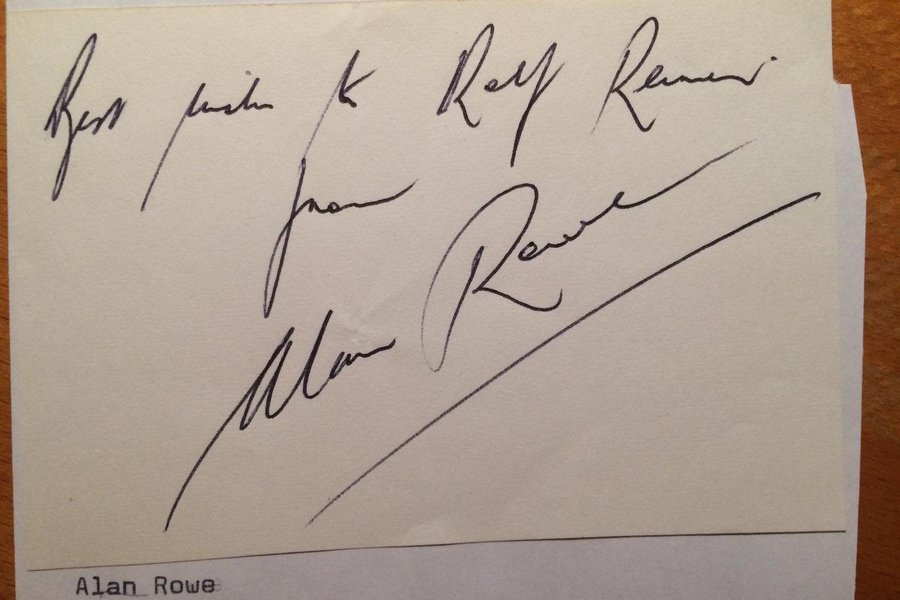 Best wishes to Ralf Reimer.
from
Alan Rowe
Alan Rowe